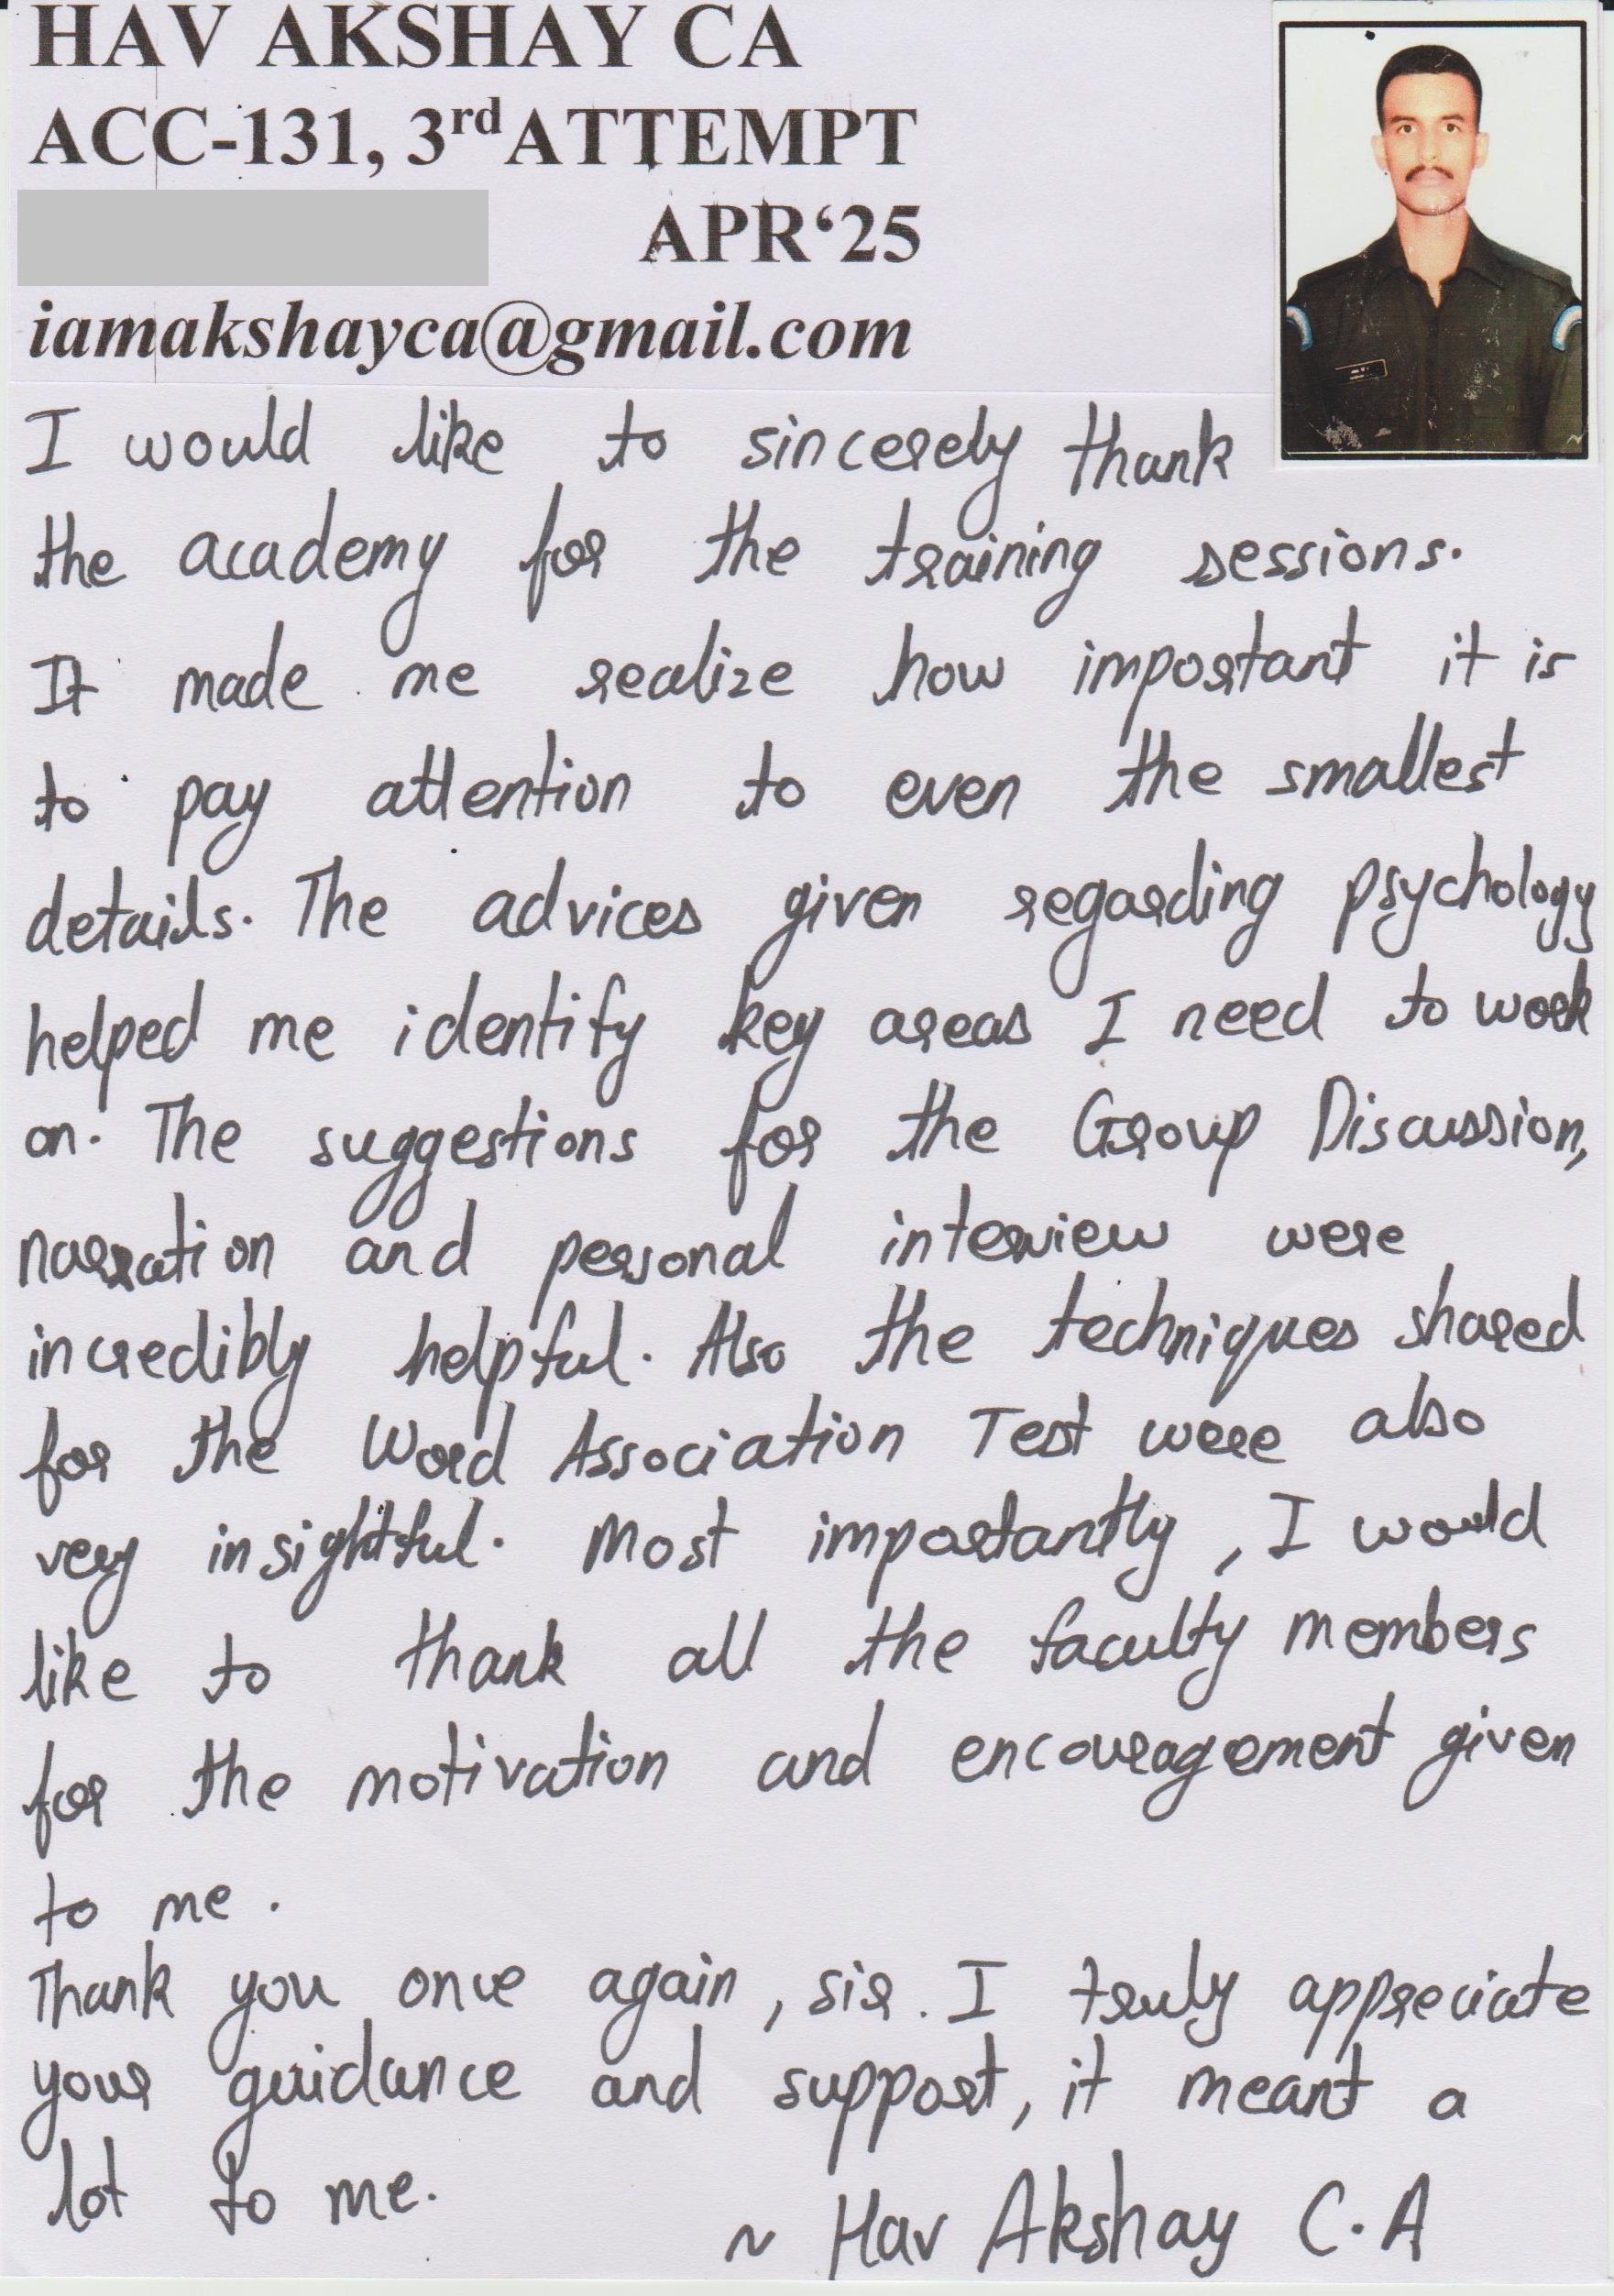 HAV AKSHAY CA
ACC-131, 3rd ATTEMPT
APR‘25
iamakshayca@gmail.com
I would like to sincerely thank
the academy for the training sessions.
It made me realize how important it is
to pay attention to even the smallest
details. The advices given regarding psychology
helped me identify key areas I need to work
on. The suggestions for the Group Discussion,
narration and personal interview were
incredibly helpful. Also the techniques shared
for the Word Association Test were also
very insightful. Most importantly, I would
like to thank all the faculty members
for the motivation and encouragement given
to me.
Thank you once again, sir. I truly appreciate
your guidance and support, it meant a
lot to me.
~ Hav Akshay C.A